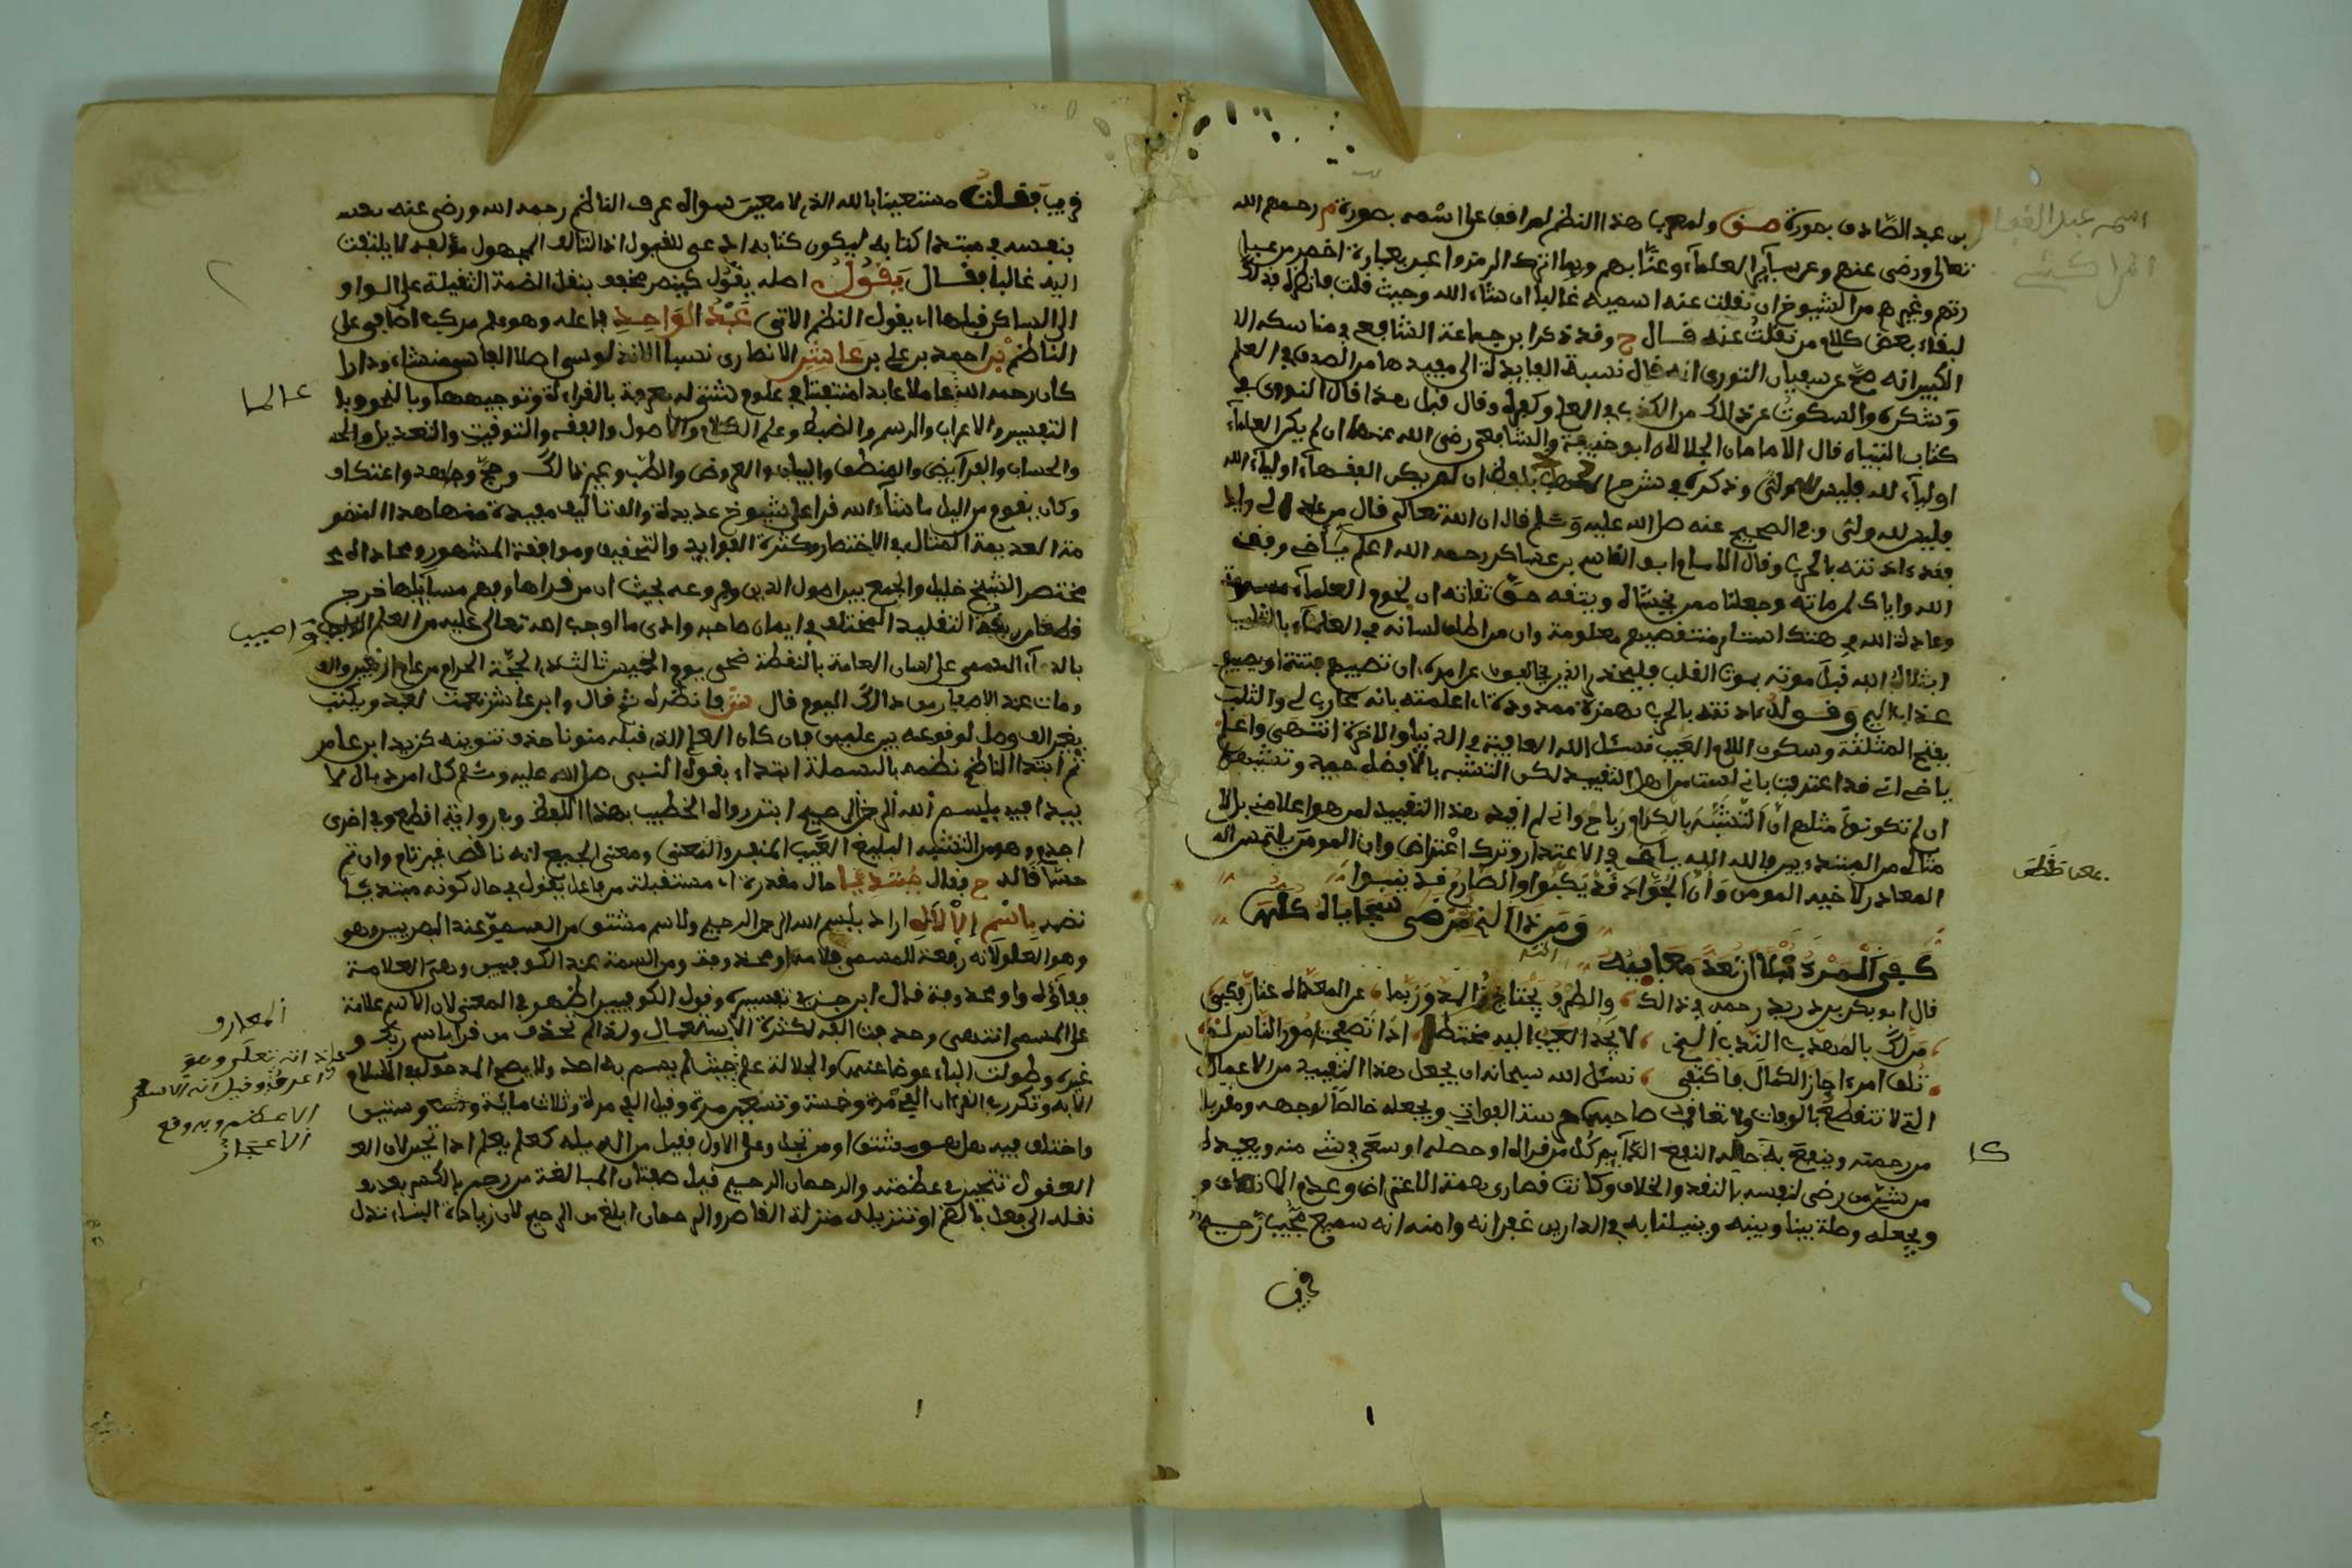 بن عبد الصادق بصورة صق ولمعرب هذا النظم لم اقف على اسمه بصورة م رحمهم الله
تعالى ورضى عنهم وعن سآير العلمآء وعنا بهم وربما اترك الرمز واعبر بعبارة اخصر من عبا
رتهم وغيرهم من الشيوخ ان نقلت عنه اسميه غالبا ان شآء الله وحيث قلت فانظره فذلك
لبقاء بعض كلام من نقلت عنه قال ح وقد ذكر ابن جماعة الشافعي في مناسكه الا
الكبير انه صح عن سفيان الثوري انه قال نسبة الفايدة الى مفيدها من الصدق في العلم
وشكره والسكوت عن ذلك من الكذب في العلم وكفره وقال قبل هذا قال النووي في
كتاب التبيان قال الامامان الجلالان ابو حنيفة والشافعي رضى الله عنهما ان لم يكن العلمآء
اوليآء لله فليس لله ولي وذكره في شرح المهذب بلفظ ان لم يكن الفقهآء اوليآء الله
فليس لله ولي وفي الصحيح عنه صلى الله عليه وسلم قال ان الله تعالى قال من عادى لي وليا
فقد ءاذنته بالحرب وقال الامام ابو القاسم بن عساكر رحمه الله اعلم يا أخي وفقنا
الله واياك لمرضاته وجعلنا ممن يخشاه ويتقه حق تقاته ان لحوم العلمآء مسمومة
وعادة الله في هتك استار منتقصيهم معلومة وان من اطلق لسانه في العلمآء بالثلب
ابتلاه الله قبل موته بموت القلب فليحذر الذين يخالفون عن امره ان تصيبهم فتنة او يصيبهم
عذاب اليم وقوله ءاذنته بالحرب بهمزة ممدودة اى اعلمته بانه محارب لي والثلب
بفتح المثلثة وسكون اللام العيب نسئل الله العافية في الدنيا والاخرة انتهى واعلم
يا أخي اني قد اعترفت باني لست من اهل التقييد لكن التشبه بالافاضل
ان لم تكونوا مثلهم ان التشبه بالكرام رباح واني لم اقيد هذا التقييد لمن هو اعلا مني بل لا
مثالي من المبتدءيين فالله الله يا أخي في الاعتذار وترك اعتراض وان المومن يلتمس اله
المعاذر لاخيه المومن وان الجواد قد يكبوا والصارم قد ينبوا
ومن ذا الذي ترضى سجاياه كلها
كفى المرء نبلا ان تعد معايبه
قال ابو بكر بن دريد رحمه في ذلك والطرف يجتاز المدى وربما عن لمعداه عثار فكبى
من لك بالمهذب الندب الذي لا يجد العيب اليه مختطى اذا تصفحت امور الناس لم
تلف امرءا حاز الكمال فاكتفى نسئل الله سبحانه ان يجعل هذا التقييد من الاعمال
التي لا تنقطع بالوفات ولا تعاقب صاحبها وتجعله خالصا لوجهه ومقربا
من رحمته وينفع به النفع الدآيم كل من قراه او حصله او سعى في شئ منه ويعيذه
من شر من رضى لنفسه بالنقد والخلاف وكانت قصارى همته الاعتراض وعدم الانصاف و
ويجعله وصلة بيننا وبينه وينيلنا به في الدارين غفرانه وامنه انه سميع مجيب رحيم
اسمه عبد الغفار
المراكشي
قريب فقلت مستعينا بالله الذي لا معين سواه عرف الناظم رحمه الله ورضى عنه نفسه
بنفسه في مبتدا كتابه ليكون كتابه ادعى للقبول اذ التاليف المجهول مؤلفه لا يلتفت
اليه غالبا فقال يقول اصله يقول كينصر مخفف بنقل الضمة الثقيلة على الواو
الى الساكن قبلها اى يقول النظم الاتي عبد الواحد فاعله وهو علم مركب اضافي على
الناظم بن احمد بن علي بن عاشر الانصاري نسبا الاندلسي اصلا الفاسي منشئا ودارا
كان رحمه الله عاملا عابدا متفننا في علوم شتى له معرفة بالقراءة وتوجيهها وبالنحو وا
التفسير والاعراب والرسم والضبط وعلم الكلام والاصول والفقه والتوقيت والتعديل والحد
والحساب والفرآيض والمنطق والبيان والعروض والطب وغير ذلك وحج وجاهد واعتكف
وكان يقوم من اليل ما شآء الله قرا على شيوخ عديدة والف تاليف مفيدة منها هذا المنظو
مة العديمة المثال في الاختصار وكثرة الفوايد والتحقيق وموافقة المشهور ومحاذاة
مختصر الشيخ خليل والجمع بين اصول الدين وفروعه بحيث ان من قراها وفهم مسآيلها خرج
قطعا من ربقة التقليد المختلف في ايمان صاحبه وادى ما اوجب الله تعالى عليه من العلم الواجب
بالدآء المسمى على لسان العامة بالنقطة ضحى يوم الخميس ثالث ذى الحجة الحرام من عام اربعين والف
ومات عند الاصفرار من ذلك اليوم قال صق فانظره ثم قال وابن عاشر نعت لعبد ويكتب
بغير الف وصل لوقوعه بين علمين وان كان العلم الذي قبله منونا حذف تنوينه كزيد ابن عامر
ثم ابتدا الناظم نظمه بالبسملة ابتداء بقول النبي صلى الله عليه وسلم كل امر ذي بال لا
يبدا فيه ببسم الله الرحمن الرحيم ابتر رواه الخطيب بهذا اللفظ وفي رواية اقطع وفي اخرى
اجذم وهو من التشبيه البليغ ومعنى الجميع انه ناقص غير تام وان تم
حسا قاله ح فقال مبتديا حال مقدرة اى مستقبلة من فاعل يقول في حال كونه مبتديا
نضمه باسم الالاه اراد ببسم الله الرحمن الرحيم والاسم مشتق من السمو عند البصريين وهو
وهو العلو لانه رفعة للمسمى فلامه واو محذوفة ومن السمة عند الكوفيين وهى العلامة
ففاؤه واو محذوفة قال ابن جزي في تفسيره وقول الكوفيين اظهر في المعنى لان الاسم علامة
على المسمى انتهى وحذفت الفه لكثرة الاستعمال ولذا لم تحذف من اقرا باسم ربك و
غيره وطولت الباء عوضا عنها والجلالة علم بحيث لم يسم به احد ولا يصح الدخول في الاسلام
الا به وتكرر في القرءان الفى مرة وخمسة وتسعين مرة وقيل الفى مرة وثلاث مائة وستين
واختلف فيه هل هو مشتق او مرتجل وعلى الاول فقيل من اله يله كعلم يعلم اذا تحير لان الع
العقول تتحير في عظمته والرحمان الرحيم قيل صفتان للمبالغة من رحم بالكسر بعد
نقله الى فعل بالضم او تنزيله منزلة القاصر والرحمان ابلغ من الرحيم لان زيادة البناء تدل
عالما
المعارف
اعرف وقيل انه الاسم
الاعظم وبه وقع
الاعجاز